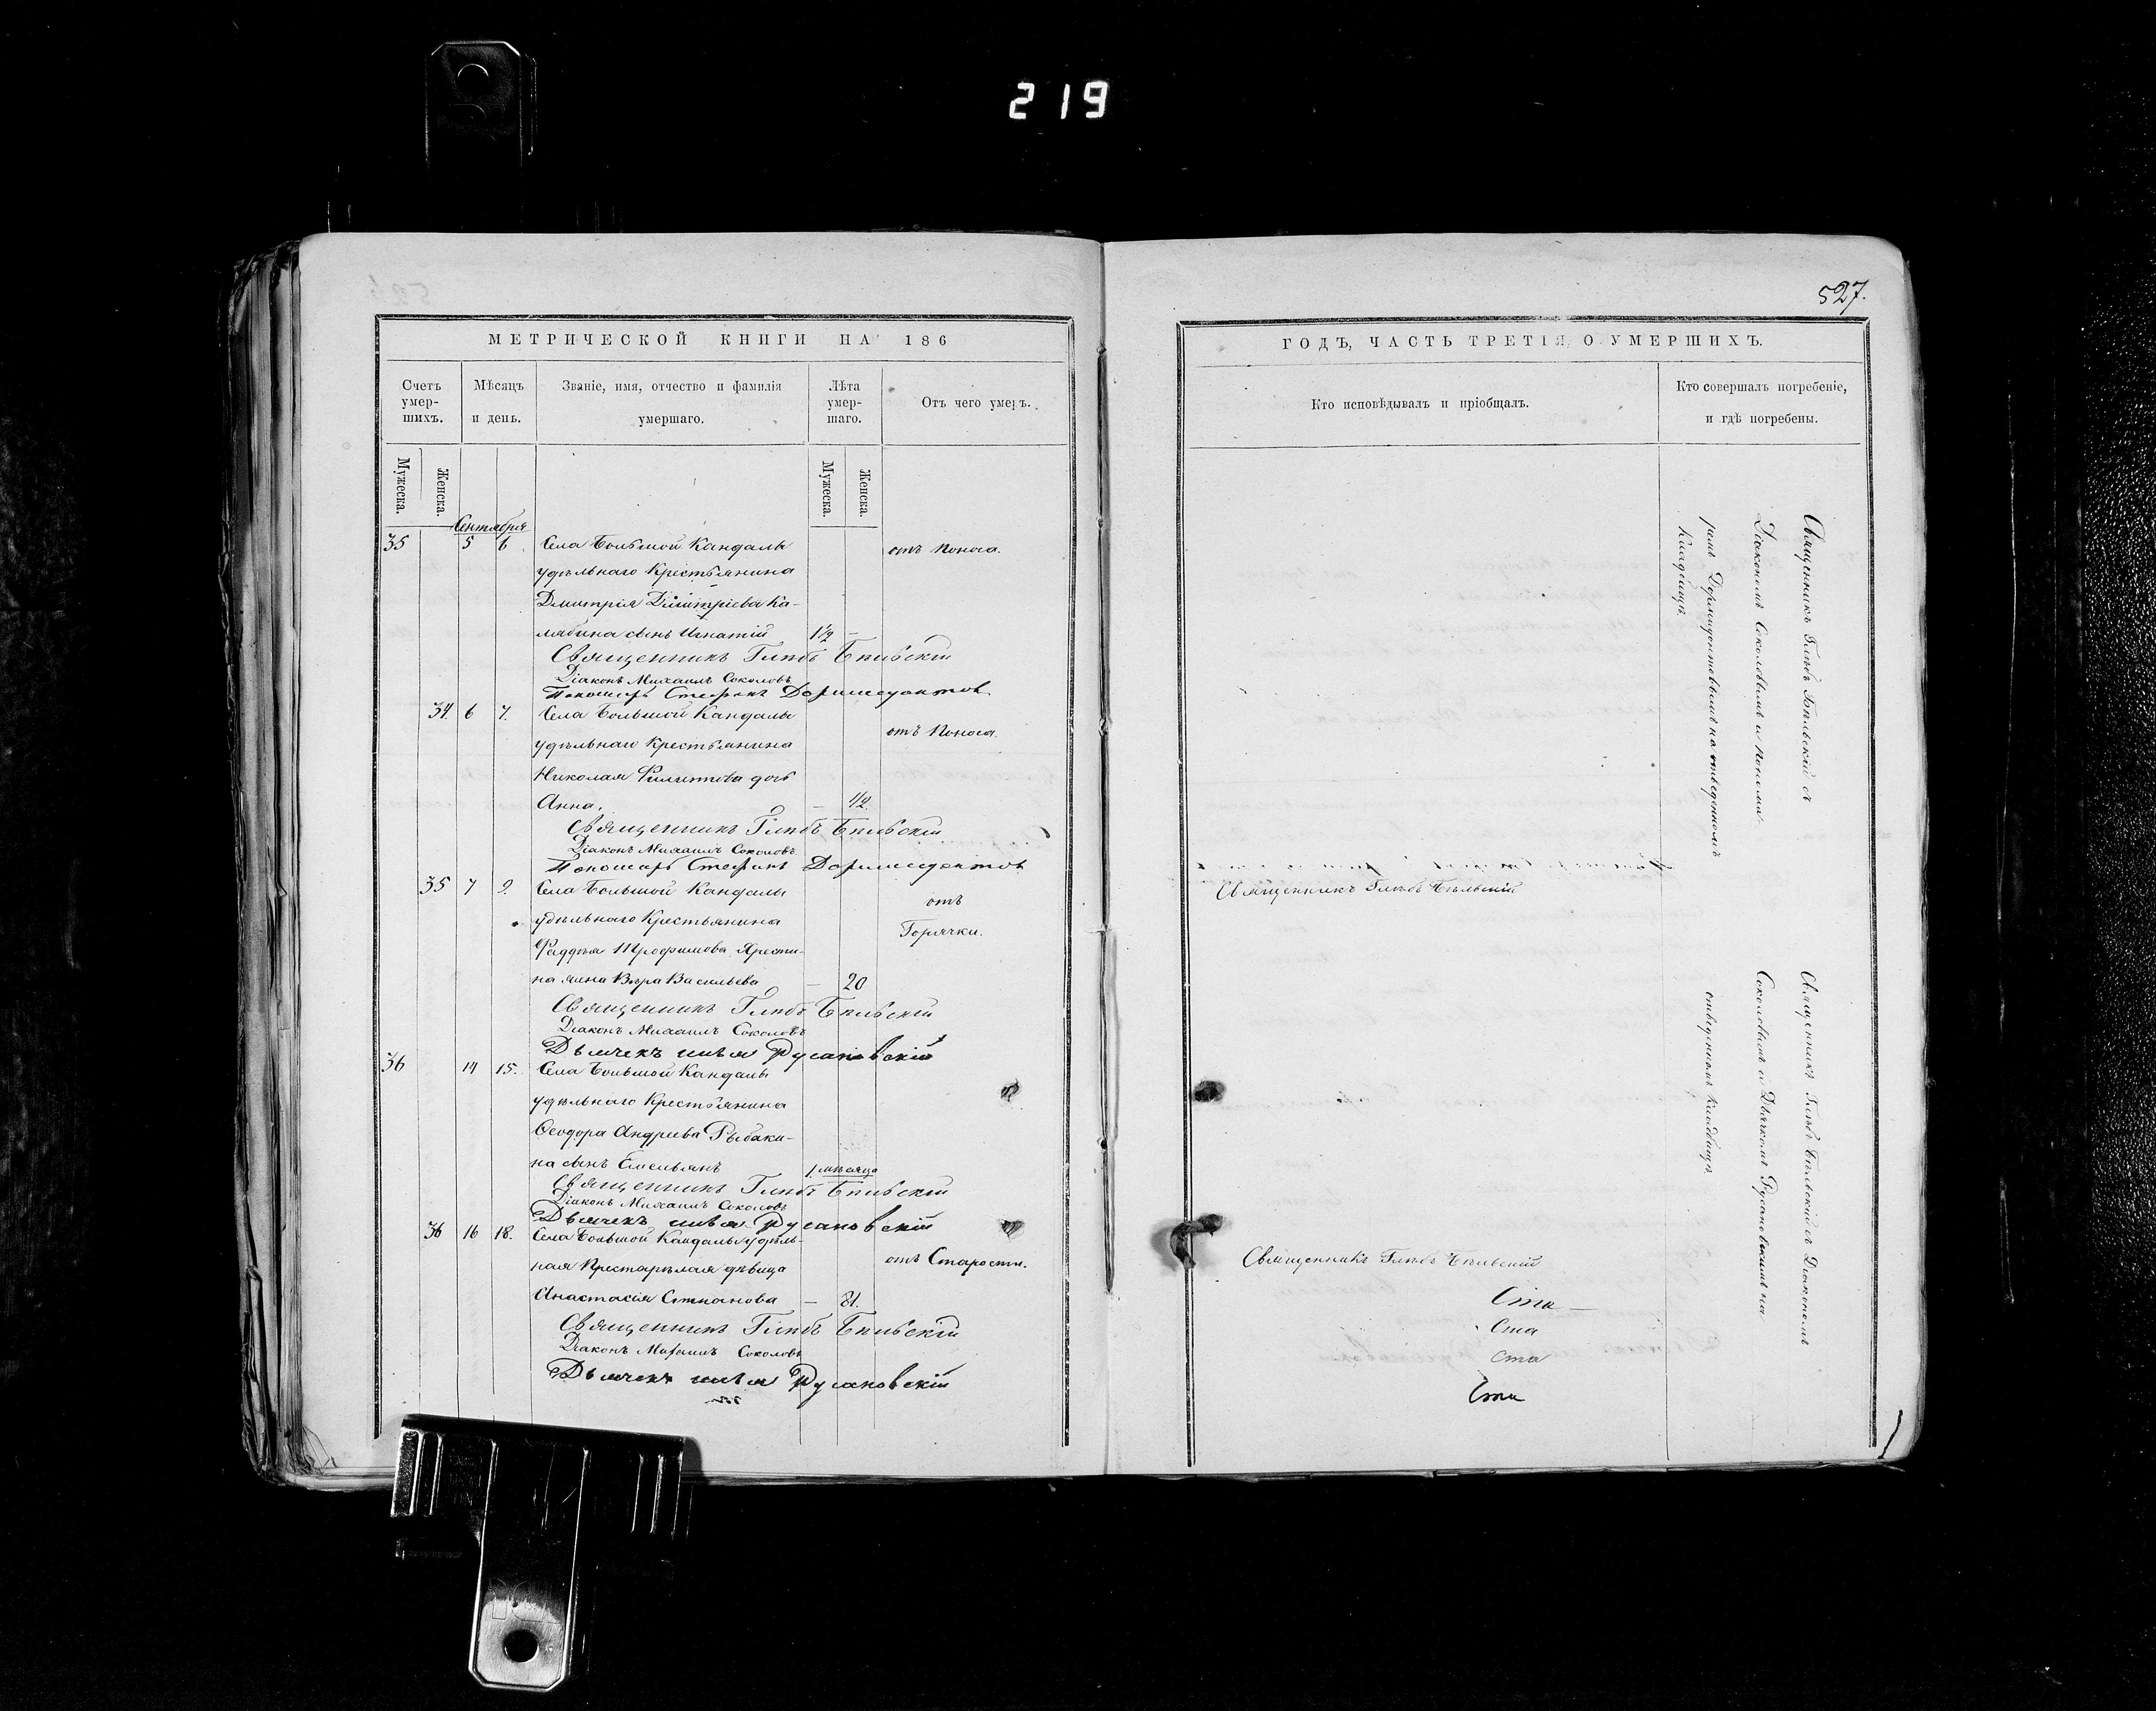 219
527.
МЕТРИЧЕСКОЙ КНИГИ НА 186
Счетъ умер-шихъ.
Мѣсяцъ и день.
Званіе, имя, отчество и фамилія умершаго.
Лѣта умер-шаго.
Отъ чего умеръ.
Мужеска.
Женска.
Мужеска.
Женска.
Сентября
35 5 6. Села Большой Кандалы отъ поноса.
удѣльнаго Крестьянина
Дмитрія Димитріева Ка-
лябина сынъ Игнатій 1½ –
Священникъ Глѣбъ Бѣльскій
Діаконъ Михаилъ Соколовъ
Пономарь Стефанъ Доримедонтов
34. 6 7. Села Большой Кандалы
отъ поноса.
удѣльнаго Крестьянина
Николая Филиппова дочь
Анна. – 1/2.
Священникъ Глѣбъ Бѣльскій
Діаконъ Михаилъ Соколовъ.
Пономарь Стефанъ Доримедонтов
35 7 9. Села Большой Кандалы
отъ
удѣльнаго Крестьянина
Горячки.
Фаддея Трофимова
на жена Вѣра Васильева – 20
Священникъ Глѣбъ Бѣльскій
Діаконъ Михаилъ Соколовъ
Дьячекъ Илья Русановскій
36 14 15. Села Большой Кандалы
удѣльнаго Крестьянина
Ѳеодора Андреева Рыбаки-
на сынъ Емельянъ 1. мѣсяца
Священникъ Глѣбъ Бѣльскій
Діаконъ Михаилъ Соколовъ
Дьячекъ Илья Русановскій
36 16 18. Села Большой Кандалы удѣль-
ная Престарѣлая дѣвица отъ Старости.
Анастасія Степанова – 81.
Священникъ Глѣбъ Бѣльскій
Діаконъ Михаилъ Соколовъ
Дьячекъ Илья Русановскій
ГОДЪ, ЧАСТЬ ТРЕТІЯ, О УМЕРШИХЪ.
Кто исповѣдывалъ и пріобщалъ.
Кто совершалъ погребеніе, и гдѣ погребены.
Священникъ Глѣбъ Бѣльскій
Священникъ Глѣбъ Бѣльскій
Священникъ Глѣбъ Бѣльскій съ
Діакономъ Соколовымъ и понома-
ремъ Доримедонтовымъ на отведенномъ
Кладбищѣ
Священникъ Глѣбъ Бѣльскій съ Діакономъ
Соколовымъ и Дьячкомъ Русановскимъ на
отведенномъ Кладбищѣ